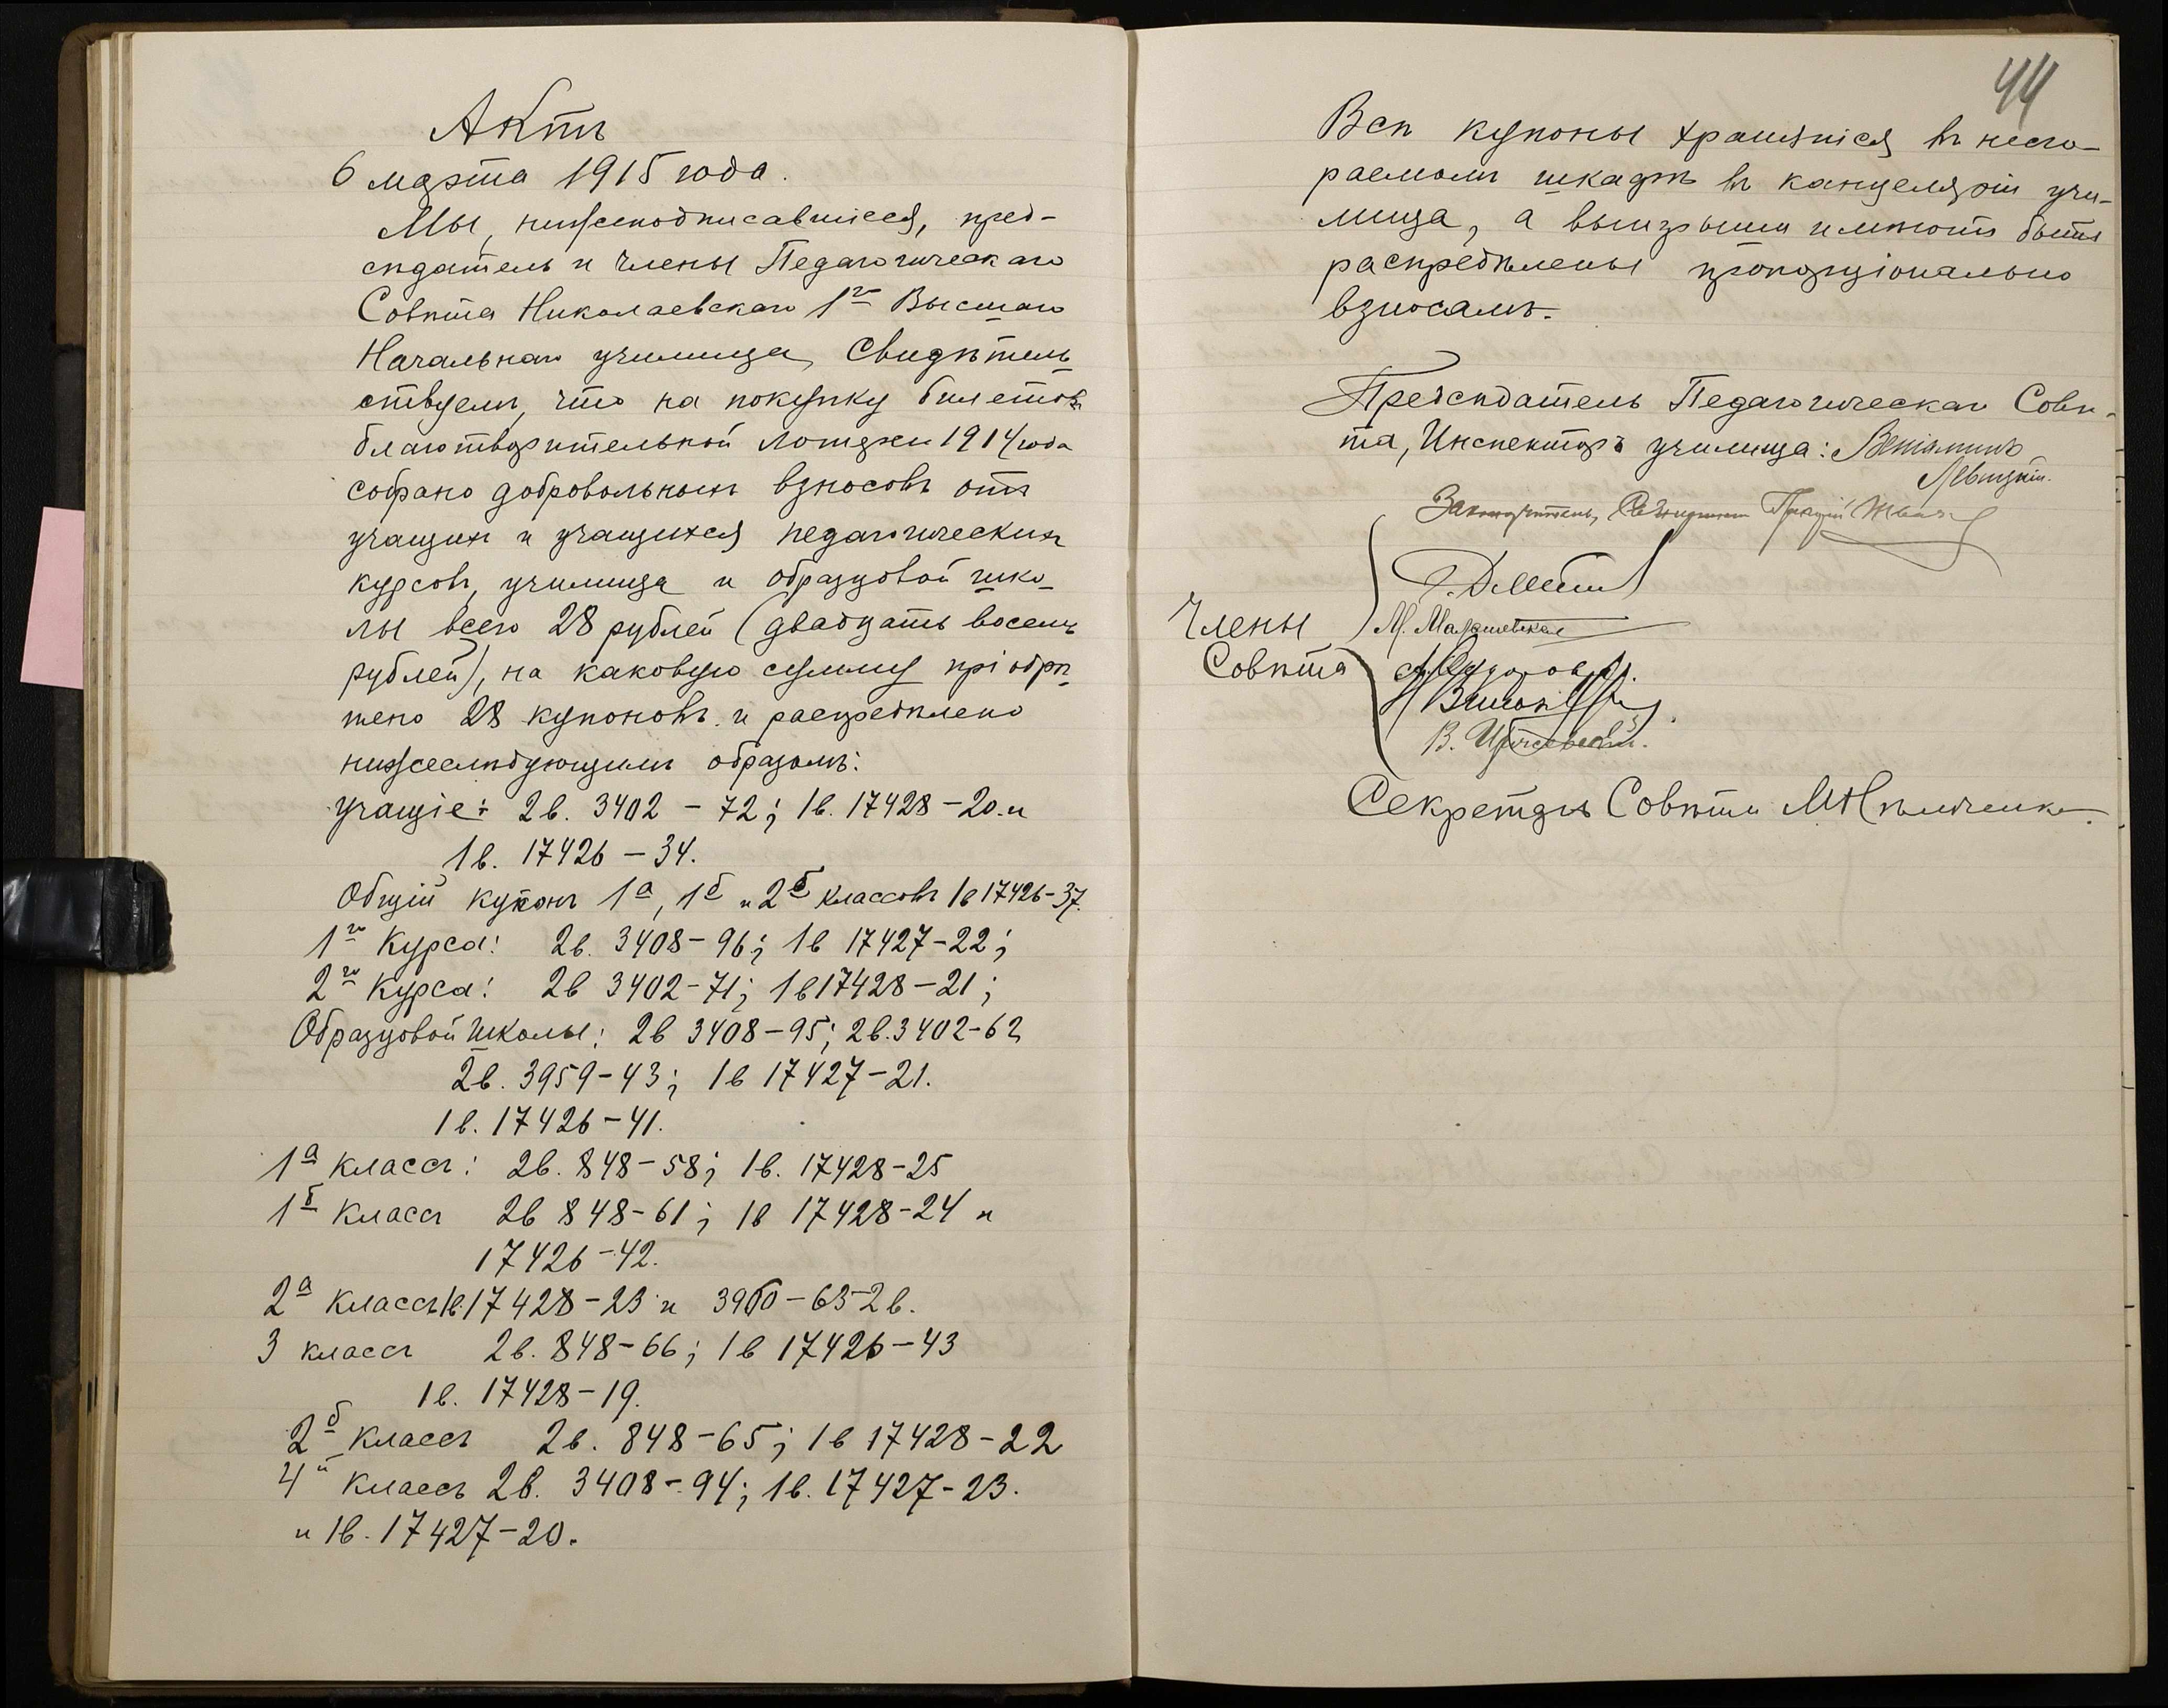 Актъ
6 марта 1915 года.
Мы, нижеподписавшіеся, пред-
сѣдатель и члены Педагогическаго
Совѣта Николаевскаго 1го Высшаго
Начальнаго училища, свидѣтель-
ствуемъ, что на покупку билетовъ
благотворительной лотереи 1914 года
собрано добровольныхъ взносовъ отъ
учащихъ и учащихся педагогическихъ
курсовъ, училища и образцовой шко-
лы всего 28 рублей (двадцать восемь
рублей), на каковую сумму пріобрѣ-
тено 28 купоновъ и распредѣлено
нижеслѣдующимъ образомъ:
Учащіе: 2в. 3402 – 72; 1в. 17428 – 20 и
1в. 17426 – 34.
Общій купонъ 1а, 1б и 2б классовъ 1в 17426 – 37.
1го Курса: 2в. 3408 – 96; 1в 17427 – 22;
2го Курса: 2в 3402 – 71; 1в 17428 – 21;
Образцовой школы: 2в 3408 – 95; 2в. 3402 – 62
2в. 3959 – 43; 1в 17427 – 21.
1в. 17426 – 41.
1а классъ: 2в. 848 – 58; 1в. 17428 – 25
1б классъ 2в 848 – 61; 1в 17428 – 24 и
17426 – 42.
2а классъ 1в. 17428 – 23 и 3960 – 63 2в.
3 классъ 2в. 848 – 66; 1в 17426 – 43
1в. 17428 – 19.
2б классъ 2в. 848 – 65; 1в 17428 – 22
4й классъ 2в. 3408 – 94; 1в. 17427 – 23.
и 1в. 17427 – 20.
44
Всѣ купоны хранятся въ несго-
раемомъ шкафѣ въ канцеляріи учи-
лища, а выигрыши имѣютъ быть
распредѣлены пропорціонально
взносамъ.
Предсѣдатель Педагогическаго Совѣ-
та, Инспекторъ училища: Веніаминъ
Левицкій.
Законоучитель, Священникъ
Члены
Совѣта
М. Малашевская
В.
Секретарь Совѣта